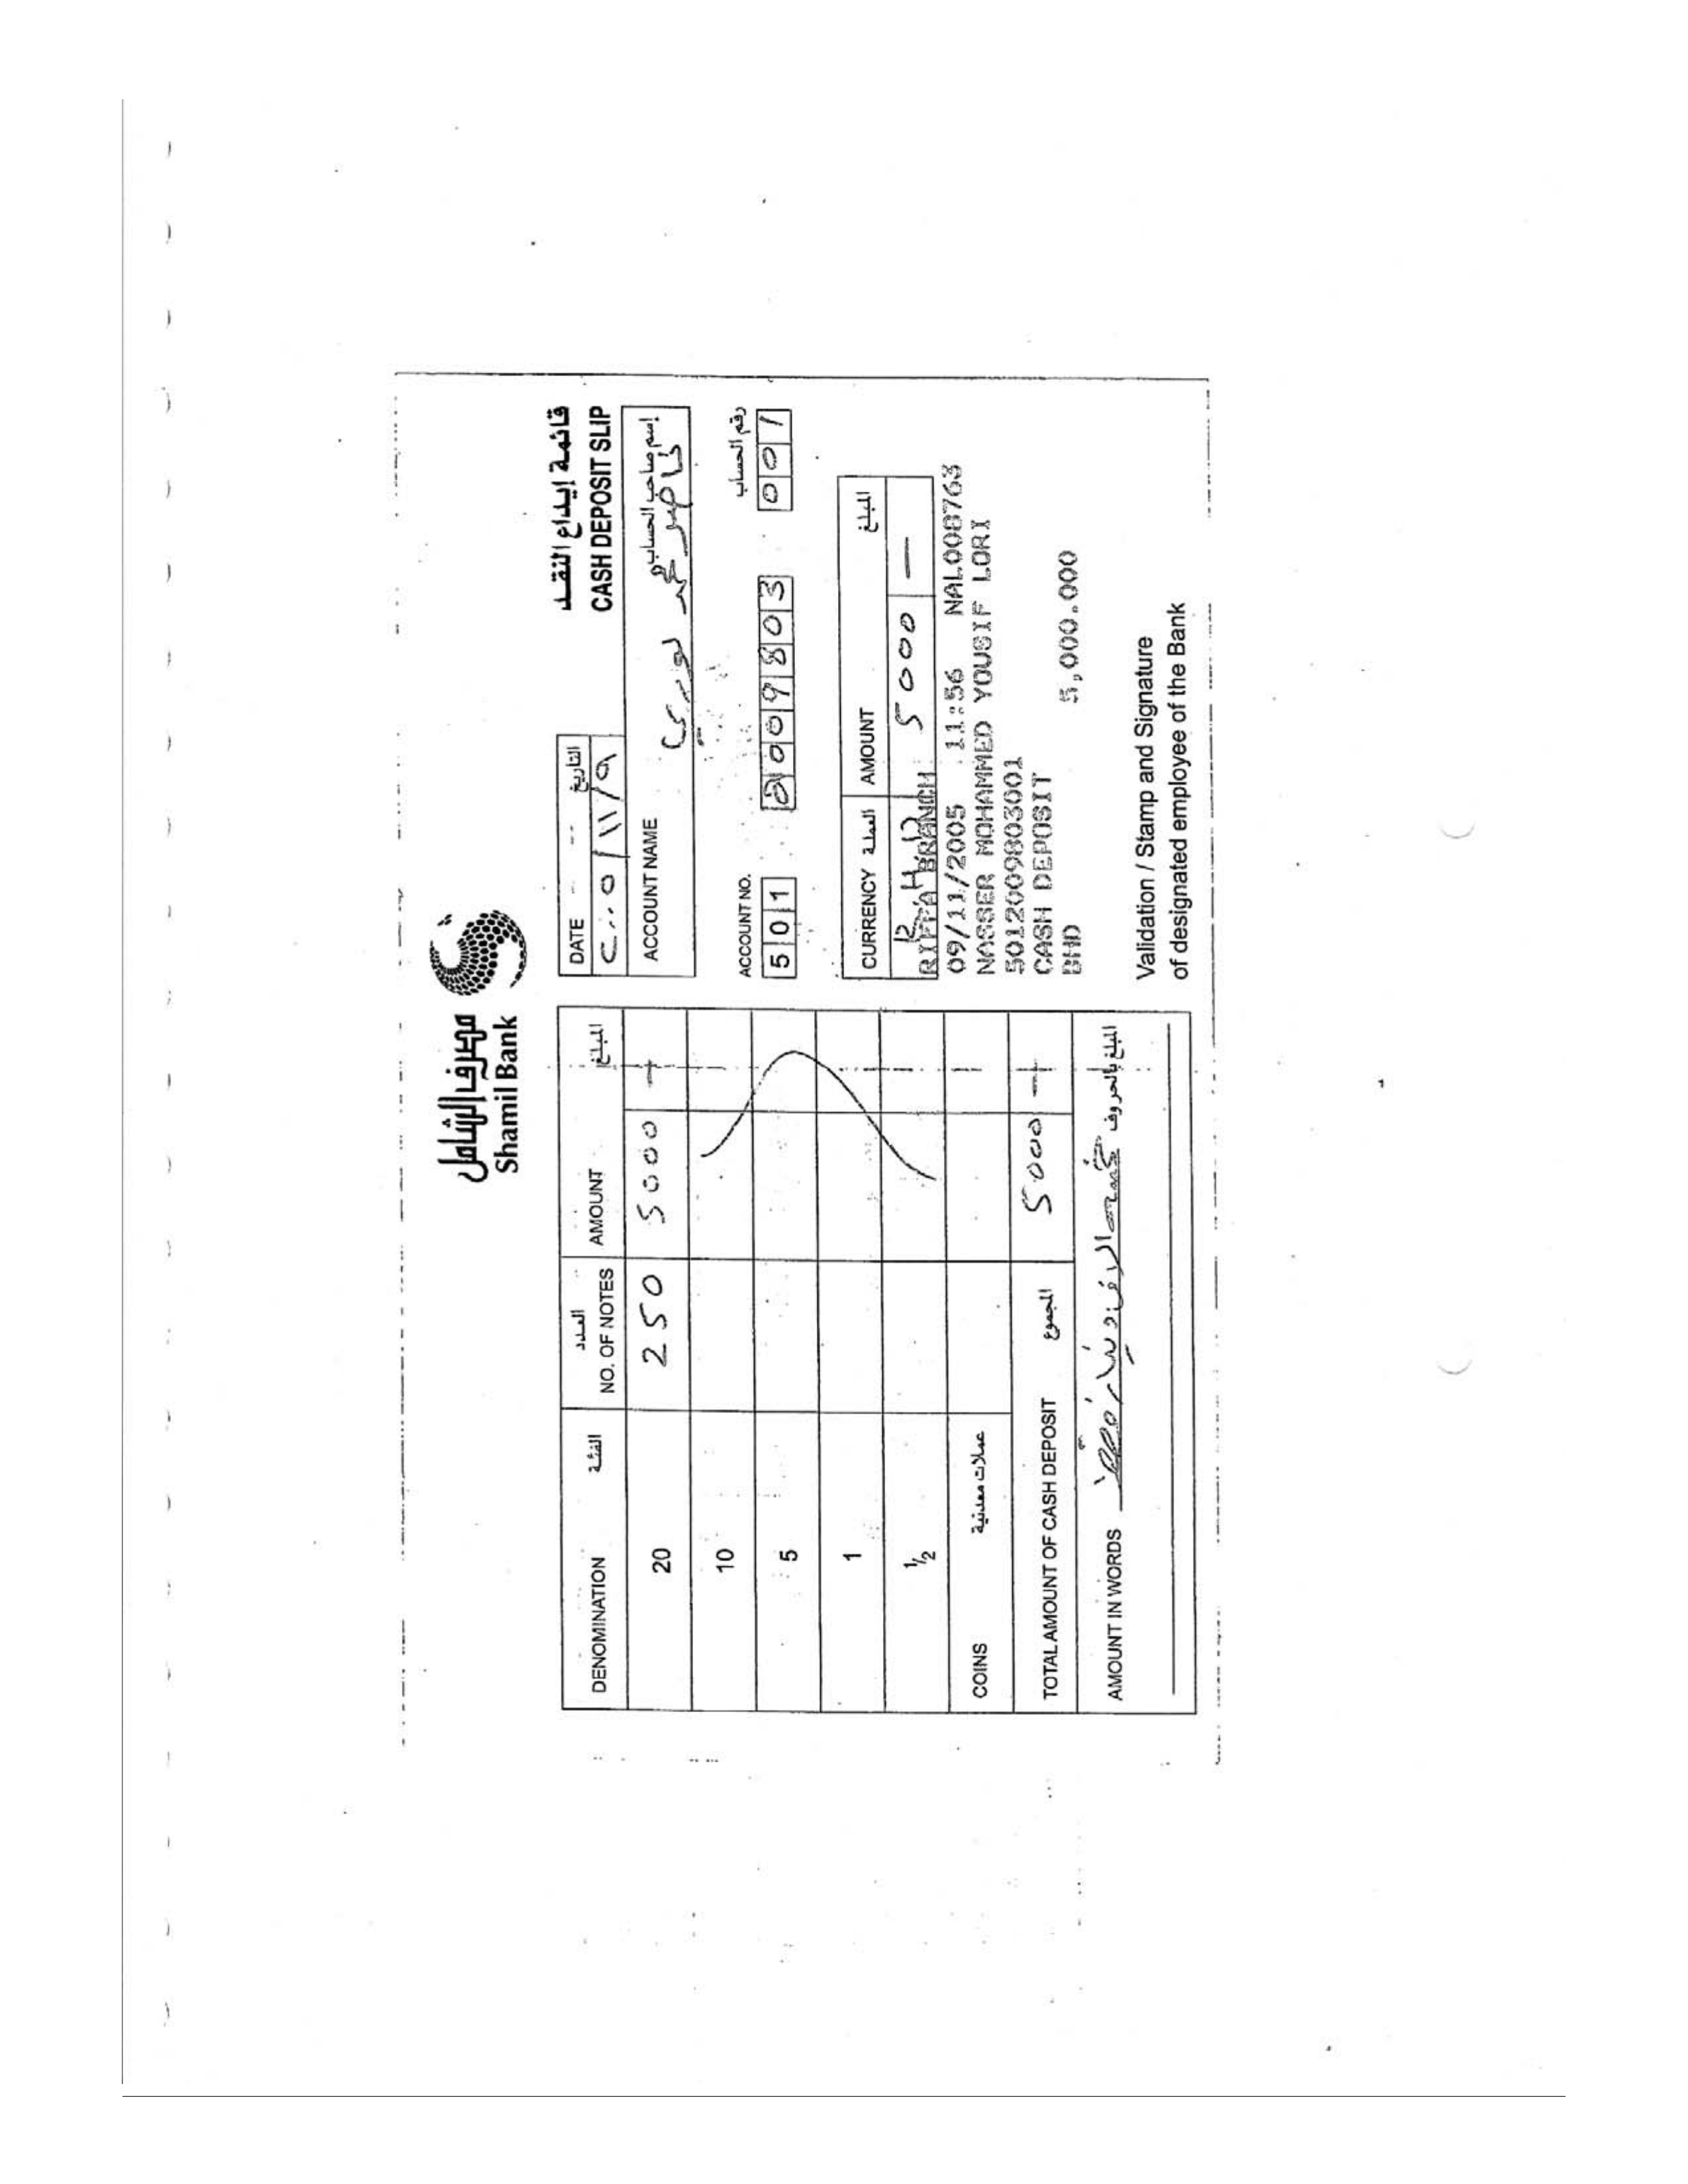 مصرف الشامل
Shamil Bank
قائمة إيداع النقد
CASH DEPOSIT SLIP
DENOMINATION الفئة
العدد NO. OF NOTES
AMOUNT المبلغ
20 250 5000 —
10
5
1
1/2
COINS عملات معدنية
TOTAL AMOUNT OF CASH DEPOSIT المجموع 5000 —
AMOUNT IN WORDS خمسة آلاف دينار المبلغ بالحروف
DATE التاريخ
٢٠٠٥/١١/٩
ACCOUNT NAME إسم صاحب الحساب
ناصر محمد لوري
ACCOUNT NO. رقم الحساب
501 2009803 001
CURRENCY العملة AMOUNT المبلغ
5000 —
RIFFA BRANCH
09/11/2005 11:56 NAL008763
NASSER MOHAMMED YOUSIF LORI
5012009803001
CASH DEPOSIT
BHD 5,000.000
Validation / Stamp and Signature
of designated employee of the Bank